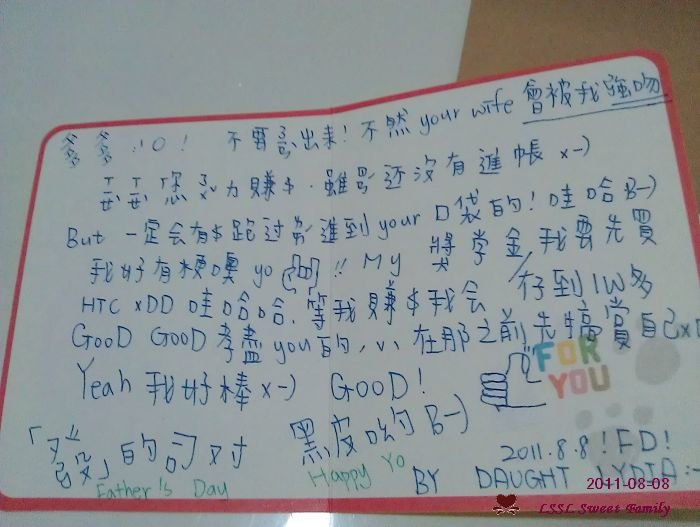 爹爹 :'O! 不要哥出來! 不然 your wife 會被我強吻
恭恭您努力賺$. 雖然還沒有進帳 x-)
But 一定会有$跑过來進到 your 口袋的! 哇哈 B-)
我好有梗噢 yo !! My 獎学金我要先買
HTC xDD 哇哈哈. 等我賺$我会存到1W多
GOOD GOOD 孝盡 you 的, 在那之前先犒賞自己 xD
Yeah 我好棒 x-) GOOD!
FOR
YOU
的司对 黑皮的 B-)
2011.8.8 ! FD!
Father's Day Happy Yo
BY DAUGHT LYDIA :-
2011-08-08
LSSL Sweet Family